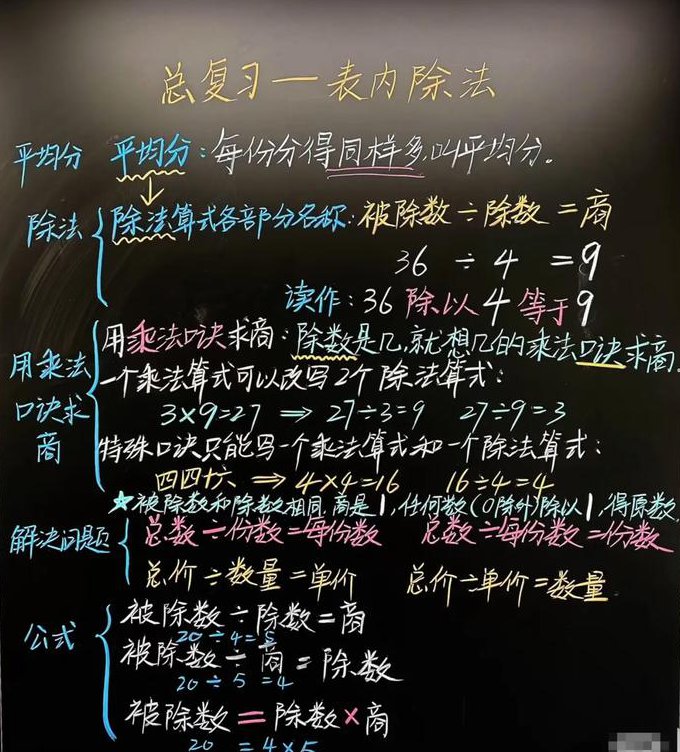 总复习一表内除法
平均分 平均分：每份分得同样多,叫平均分。
除法 除法算式各部分名称：被除数÷除数=商
36 ÷ 4 = 9
读作：36 除以 4 等于 9
用乘法口诀求商：除数是几,就想几的乘法口诀求商.
用乘法口诀求商
一个乘法算式可以改写2个除法算式：
3×9=27 ⇒ 27÷3=9 27÷9=3
特殊口诀只能写一个乘法算式和一个除法算式：
四四十六 ⇒ 4×4=16 16÷4=4
★被除数和除数相同,商是1,任何数(0除外)除以1,得原数
解决问题 总数÷份数=每份数 总数÷每份数=份数
总价÷数量=单价 总价÷单价=数量
公式 被除数÷除数=商
20÷4=5
被除数÷商=除数
20÷5=4
被除数=除数×商
20=4×5